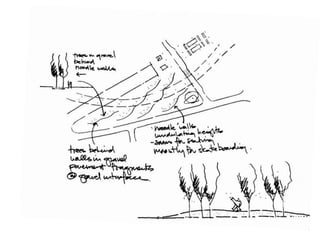 trees in gravel
behind
noodle walls
noodle walls
undulating heights
for seating
mostly for skateboarding.
trees behind
walls in gravel
pavement fragments
@ gravel interfaces